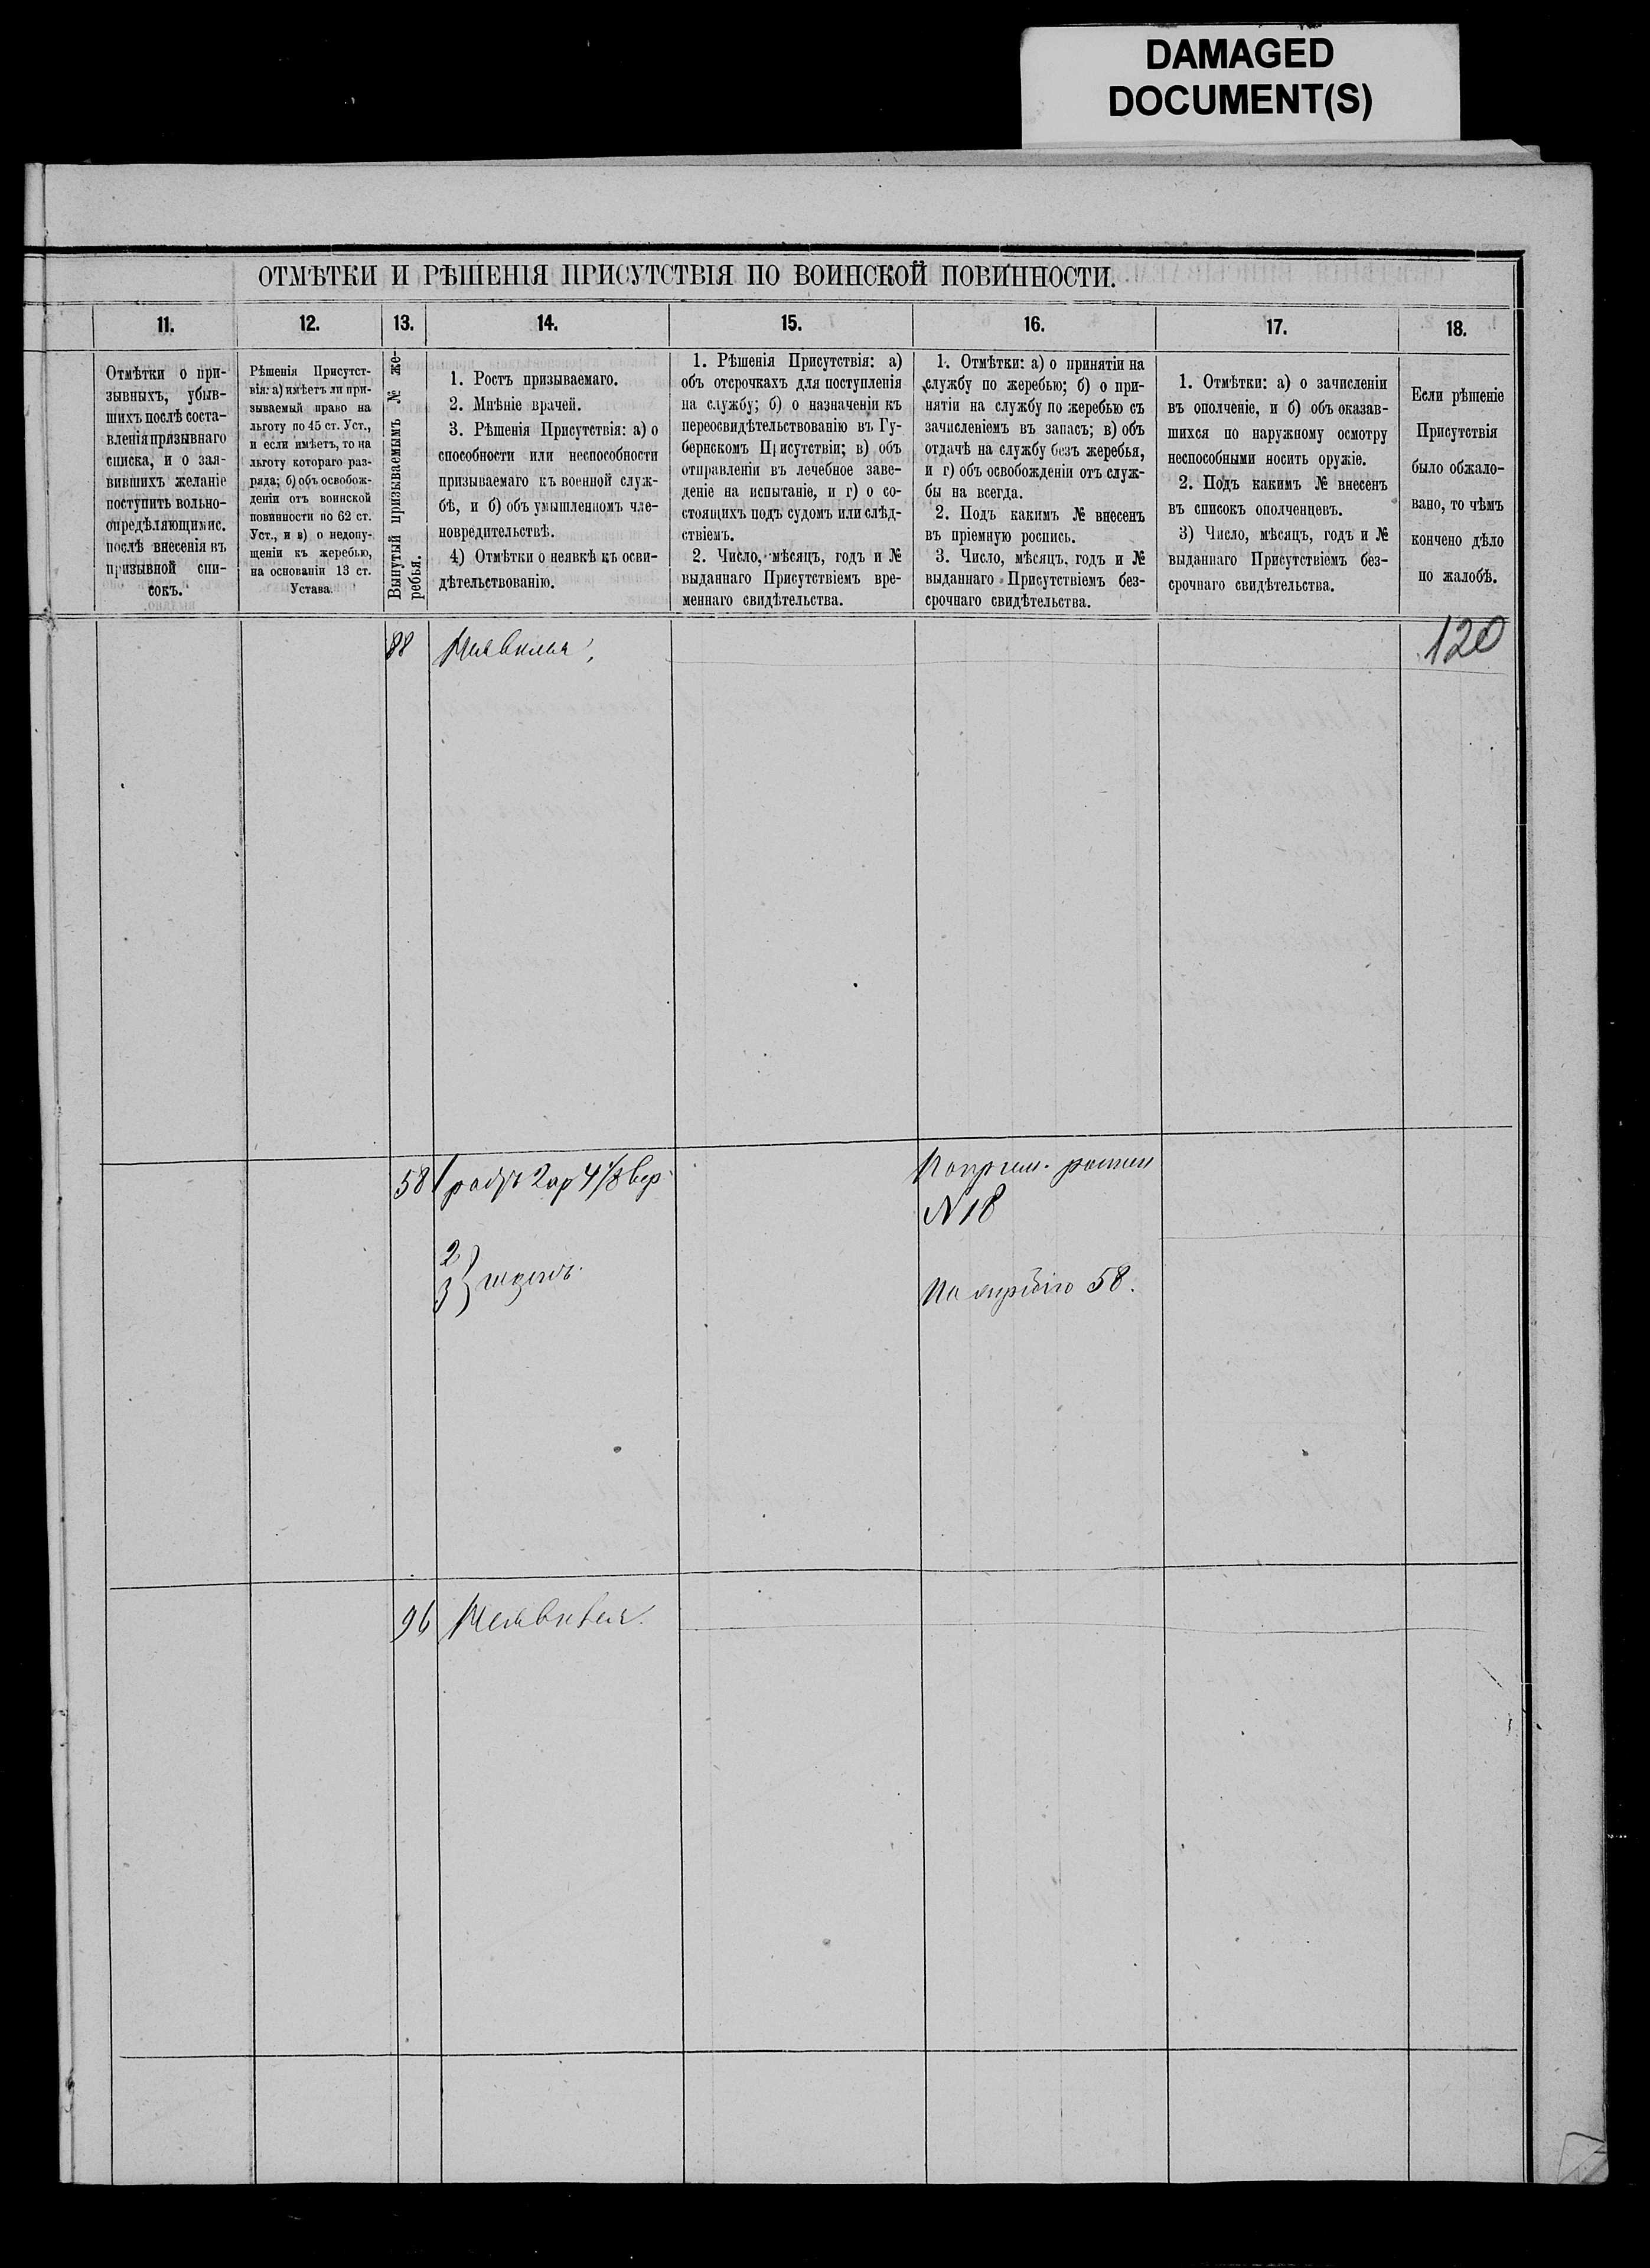 DAMAGED
DOCUMENT(S)
ОТМѢТКИ И РѢШЕНІЯ ПРИСУТСТВІЯ ПО ВОИНСКОЙ ПОВИННОСТИ.
11.
Отмѣтки о при-
зывныхъ, убыв-
шихъ послѣ соста-
вленія призывнаго
списка, и о зая-
вившихъ желаніе
поступить вольно-
опредѣляющимис.
послѣ внесенія въ
призывной спи-
сокъ.
12.
Рѣшенія Присутст-
вія: а) имѣетъ ли при-
зываемый право на
льготу по 45 ст. Уст.,
и если имѣетъ, то на
льготу котораго раз-
ряда; б) объ освобож-
деніи отъ воинской
повинности по 62 ст.
Уст., и в) о недопу-
щеніи къ жеребью,
на основаніи 13 ст.
Устава.
13.
Вынутый призываемымъ № же-
ребья.
14.
1. Ростъ призываемаго.
2. Мнѣніе врачей.
3. Рѣшенія Присутствія: а) о
способности или неспособности
призываемаго къ военной служ-
бѣ, и б) объ умышленномъ чле-
новредительствѣ.
4) Отмѣтки о неявкѣ къ осви-
дѣтельствованію.
15.
1. Рѣшенія Присутствія: а)
объ отсрочкахъ для поступленія
на службу; б) о назначеніи къ
переосвидѣтельствованію въ Гу-
бернскомъ Присутствіи; в) объ
отправленіи въ лечебное заве-
деніе на испытаніе, и г) о со-
стоящихъ подъ судомъ или слѣд-
ствіемъ.
2. Число, мѣсяцъ, годъ и №
выданнаго Присутствіемъ вре-
меннаго свидѣтельства.
16.
1. Отмѣтки: а) о принятіи на
службу по жеребью; б) о при-
нятіи на службу по жеребью съ
зачисленіемъ въ запасъ; в) объ
отдачѣ на службу безъ жеребья,
и г) объ освобожденіи отъ служ-
бы на всегда.
2. Подъ какимъ № внесенъ
въ пріемную роспись.
3. Число, мѣсяцъ, годъ и №
выданнаго Присутствіемъ без-
срочнаго свидѣтельства.
17.
1. Отмѣтки: а) о зачисленіи
въ ополченіе, и б) объ оказав-
шихся по наружному осмотру
неспособными носить оружіе.
2. Подъ какимъ № внесенъ
въ списокъ ополченцевъ.
3) Число, мѣсяцъ, годъ и №
выданнаго Присутствіемъ без-
срочнаго свидѣтельства.
18.
Если рѣшеніе
Присутствія
было обжало-
вано, то чѣмъ
кончено дѣло
по жалобѣ.
120
88 Неявился
58 1 2 ар 4 1/8 вер.
2
3 } годенъ.
По пріем. роспи
№ 18
По жеребію 58.
96 Неявился.